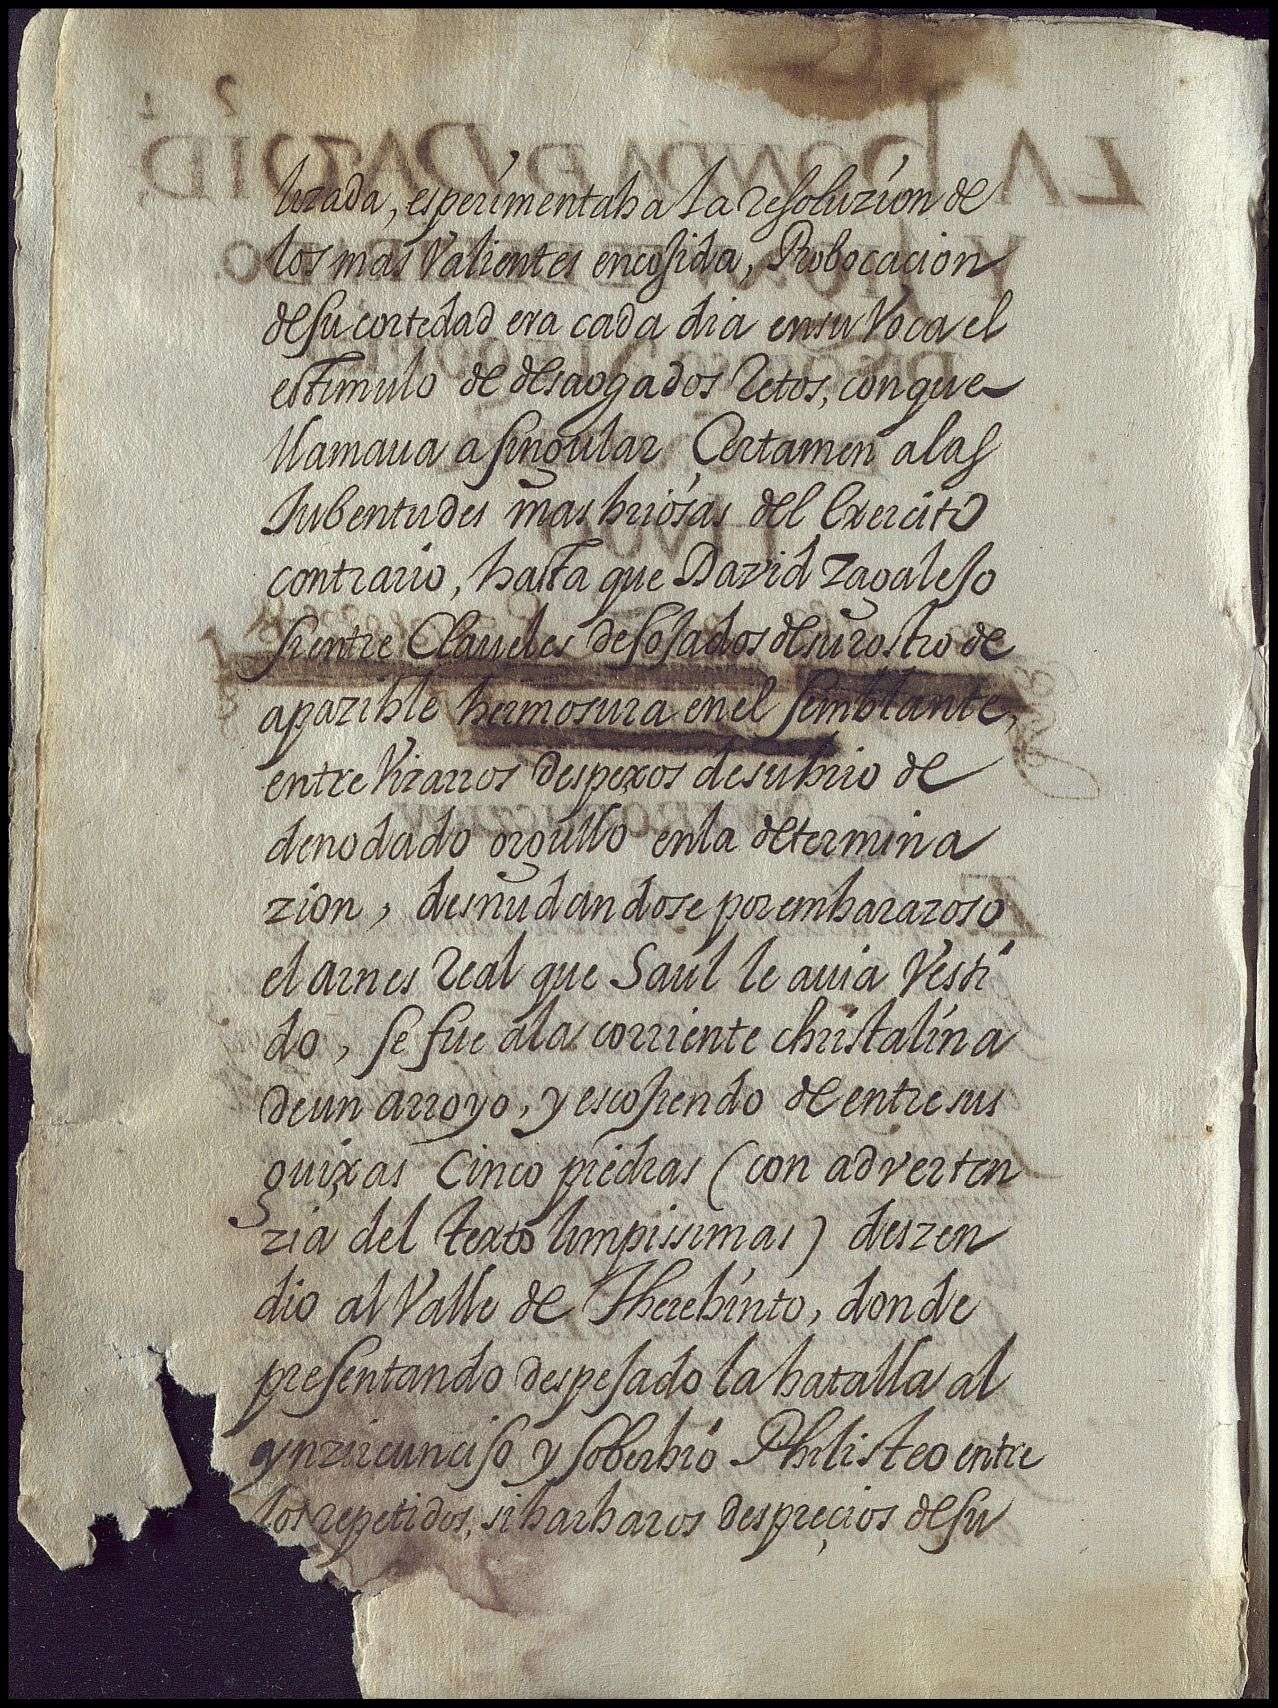 lizada, esperimentaba la resoluzion de
los mas Valientes encojida, Probocacion
de su cortedad era cada dia en su Voca el
estimulo de desaogados Retos, con que
llamaua a singular Certamen a las
Jubentudes mas briosas del Exercito
contrario, hasta que David Zagalejo
si entre Claueles desojados de su rostro de
apazible hermosura en el semblante,
entre Vizarros despexos de su brio de
denodado orgullo en la determina
zion, desnudandose por embarazoso
el arnes real que Saul le auia Vesti
do, se fue a la corriente christalina
de un arroyo, y escojiendo de entre sus
guixas Cinco piedras (con adverten
zia del texto limpissimas) deszen
dio al Valle de Therebinto, donde
presentando despejado la batalla al
ynzircunciso y soberbio Philisteo entre
los repetidos, si barbaros despreçios de su